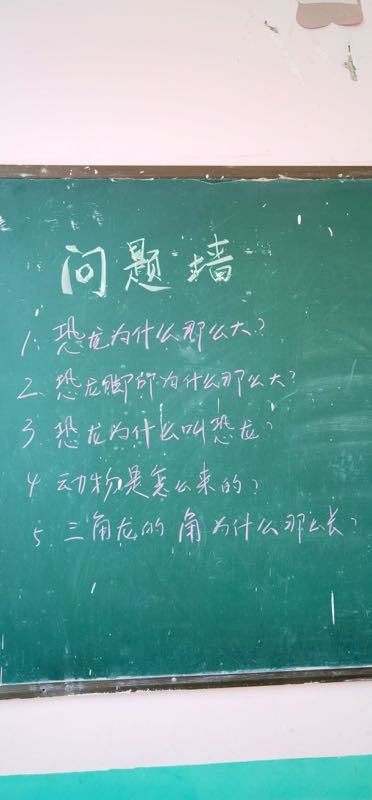 问题墙
1、恐龙为什么那么大?
2、恐龙脚印为什么那么大?
3、恐龙为什么叫恐龙?
4 动物是怎么来的?
5、三角龙的角为什么那么长?